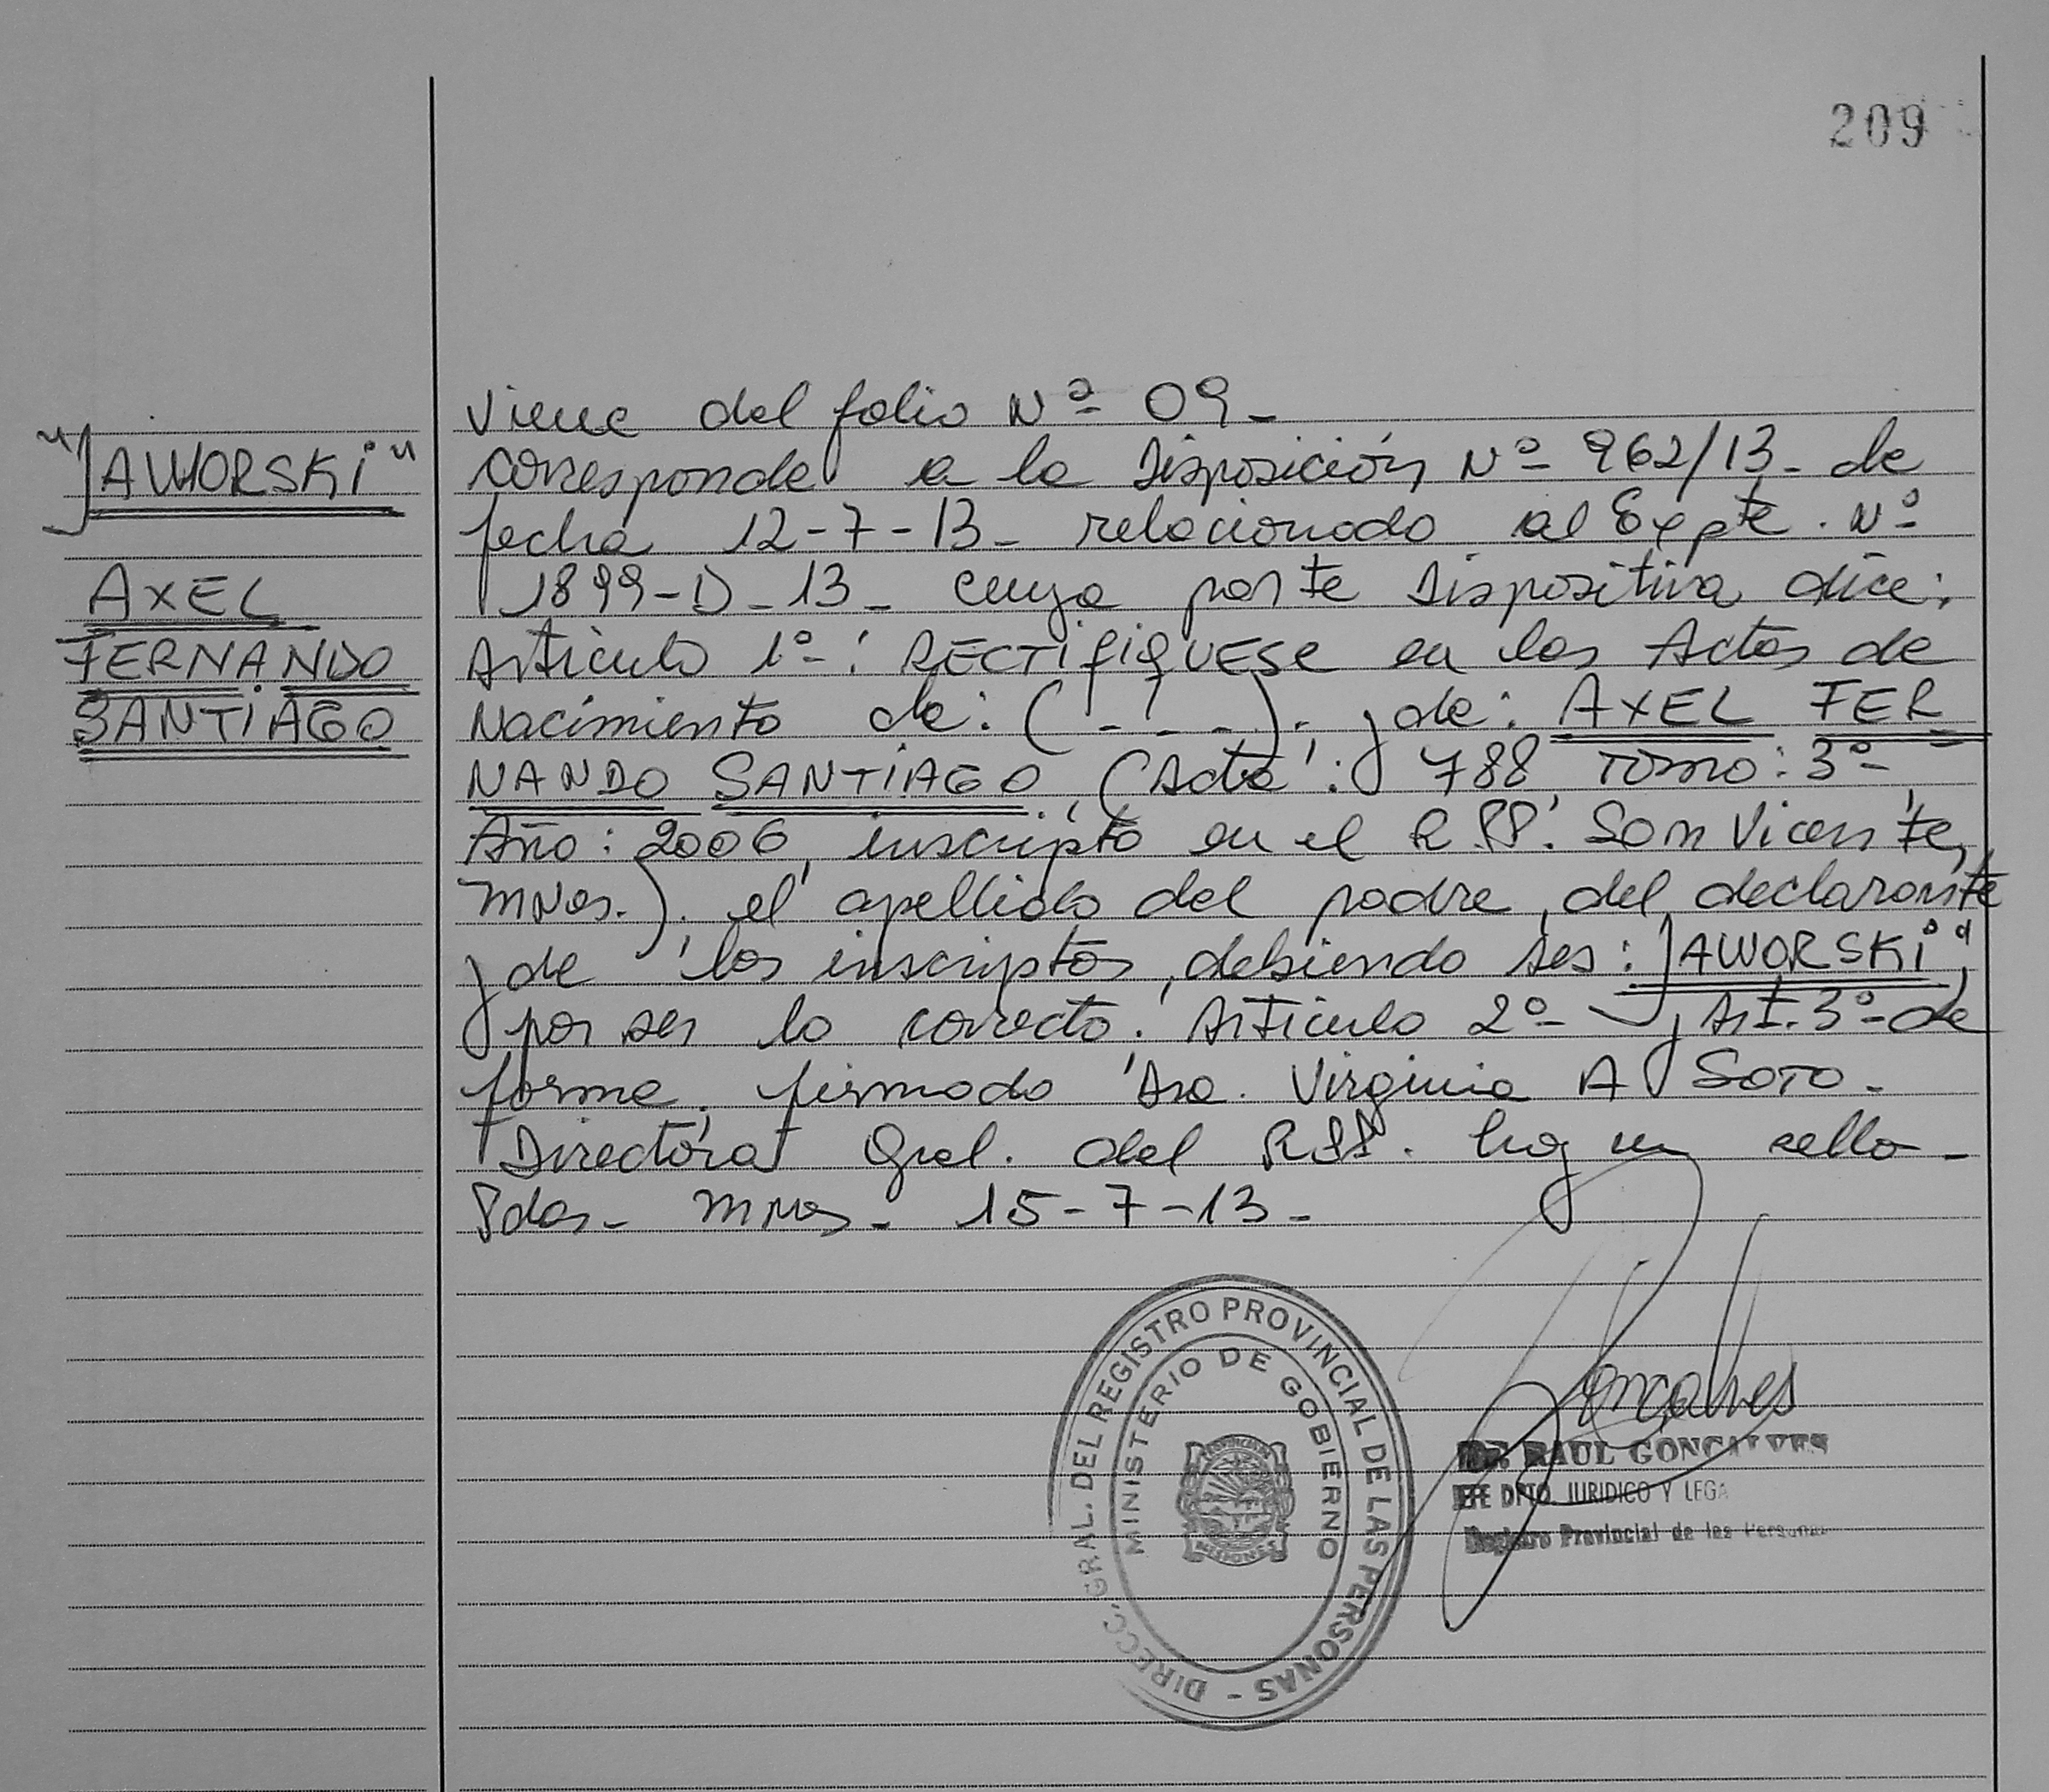 209
"JAWORSKi"
AXEL
FERNANDO
SANTiAGO
Viene del folio Nº 09-
corresponde a la Disposición Nº 962/13- de
fecha 12-7-13- relacionado al Expte. Nº
1899-D-13- cuya parte Dispositiva dice:
Artículo 1º: RECTifiQUESE en las Actas de
Nacimiento de: (- - -). y de: AXEL FER
NANDO SANTiAGO, (Acta: 788 Tomo: 3º
Año: 2006, inscripto en el R.P.P. San Vicente,
Mnes.). el apellido del padre, del declarante
y de los inscriptos, debiendo ser: JAWORSKi"
por ser lo correcto. Artículo 2º y Art. 3º de
forma. firmado Dra. Virginia A SOTO.
Directora Gral. del RPP. hay un sello-
Pdas- Mnes- 15-7-13-
DIRECC. GRAL. DEL REGISTRO PROVINCIAL DE LAS PERSONAS -
MINISTERIO DE GOBIERNO
MISIONES
Goncalves
Dr. RAUL GONCALVES
JEFE DPTO. JURIDICO Y LEGA
Registro Provincial de las Personas